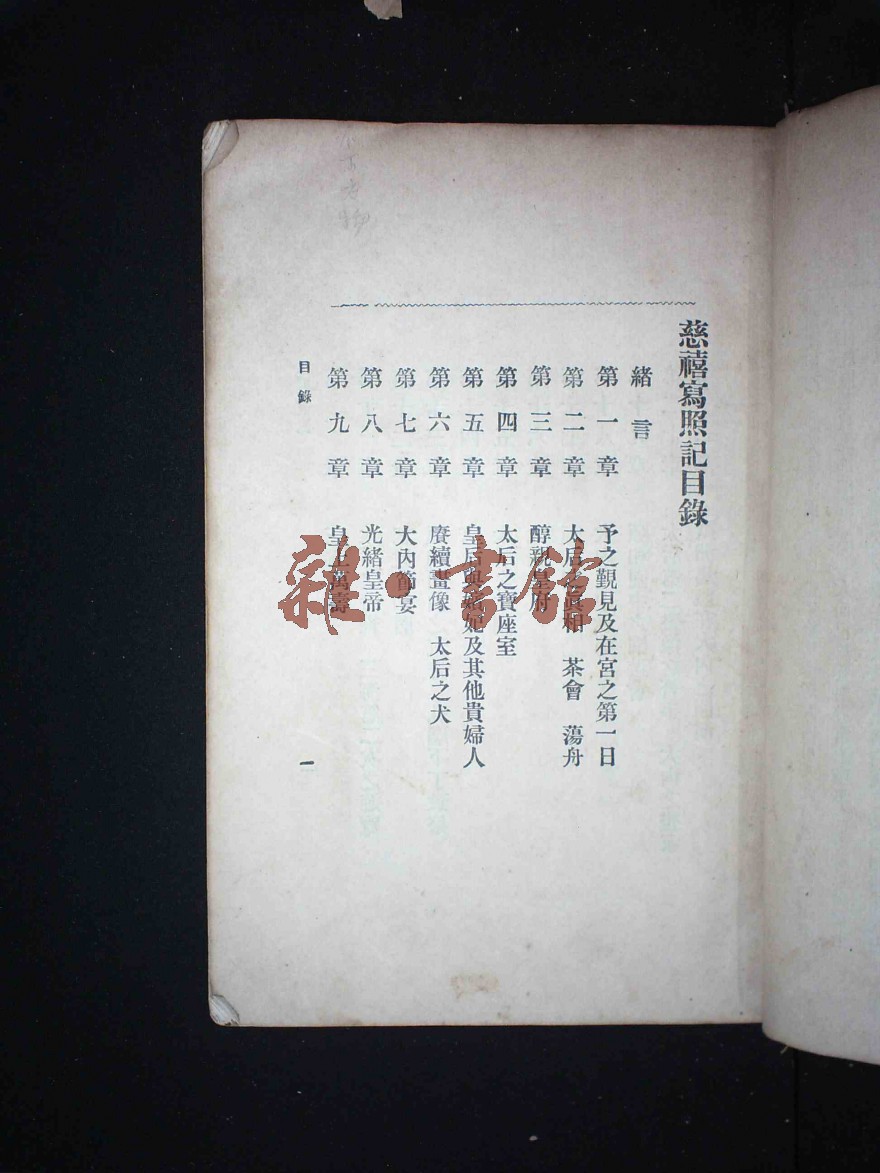 慈禧寫照記目錄
緒言
第一章 予之覲見及在宮之第一日
第二章 太后之眞相 茶會 蕩舟
第三章 醇親皇府
第四章 太后之寶座室
第五章 皇后與妃及其他貴婦人
第六章 賡續畫像 太后之犬
第七章 大內節宴
第八章 光緒皇帝
第九章 皇上萬壽
目錄
一
雜·書館